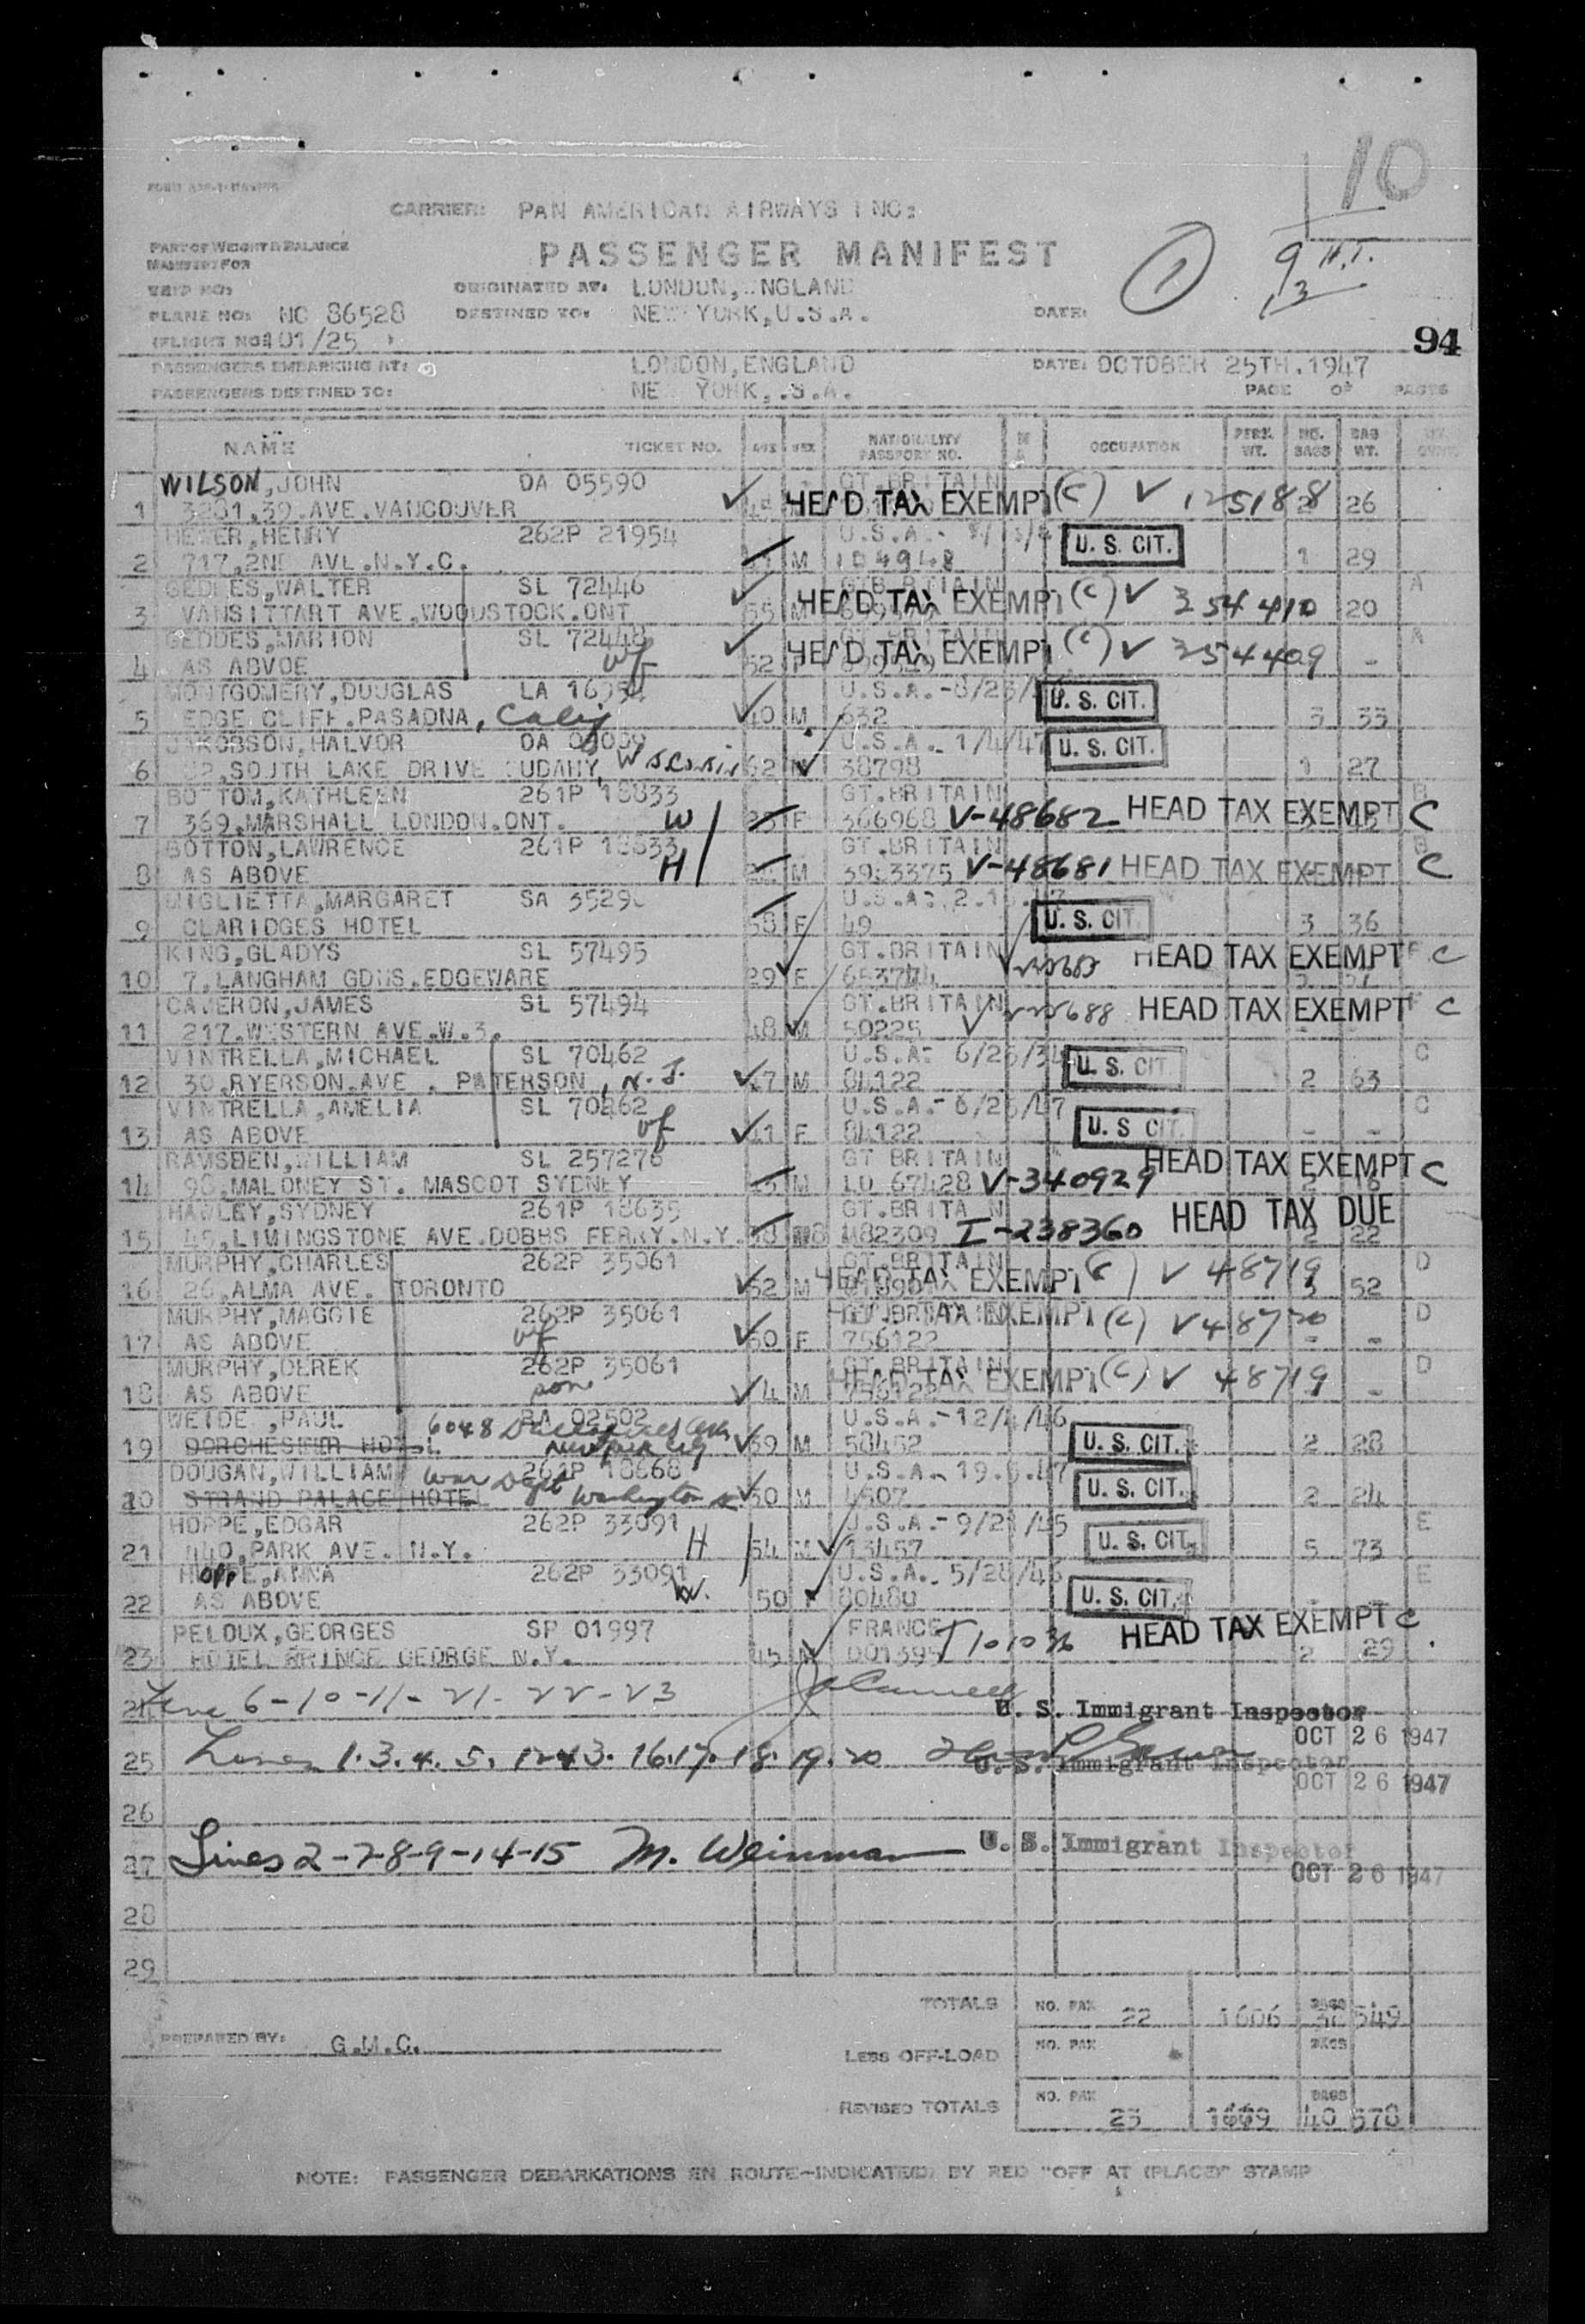 10
CARRIER: PAN AMERICAN AIRWAYS INC:
PART OF WEIGHT & BALANCE
MANIFEST FOR
PASSENGER MANIFEST
1
9 H.T.
13
TRIP NO:
ORIGINATED AT: LONDON, NGLAND
PLANE NO: NC 86528
DESTINED TO: NEW YORK,U.S.A.
DATE:
(FLIGHT NO: 101/25 )
94
PASSENGERS EMBARKING AT: LONDON,ENGLAND
DATE: OCTOBER 25TH.1947
PASSENGERS DESTINED TO: NE YORK, .S.A.
PAGE OF PAGES
NAME TICKET NO. AGE SEX NATIONALITY PASSPORT NO. OCCUPATION PERS. WT. NO. BAGS BAG WT.
WILSON,JOHN OA 05590 GT.BRITAIN
1 3281.39.AVE.VANCOUVER HEAD TAX EXEMPT (C) V 125188 26
HENRY 262P 21954 U.S.A.-
2 717.2ND AVE.N.Y.C. M 104948 U. S. CIT. 1 29
WALTER SL 72446 A
3 VANSITTART AVE.WOODSTOCK.ONT 55 M HEAD TAX EXEMPT (C) V 354410 20
GEDDES,MARION SL 72448 wf A
4 AS ABVOE 52 HEAD TAX EXEMPT (C) V 354409 -
MONTGOMERY,DOUGLAS LA U.S.A.-
5 EDGE CLIFF.PASADNA, Calif 40 M 632 U. S. CIT. 3 33
JAKOBSON,HALVOR OA U.S.A. 1/4/47
6 SOUTH LAKE DRIVE CUDAHY, Wisconsin 62 M 38798 U. S. CIT. 1 27
BOTTOM,KATHLEEN 261P 18833 GT.BRITAIN B
7 369.MARSHALL LONDON.ONT. W F 366968 V-48682 HEAD TAX EXEMPT C
BOTTON,LAWRENCE 261P 18833 GT.BRITAIN B
8 AS ABOVE H M V-48681 HEAD TAX EXEMPT C
MIGLIETTA,MARGARET SA U.S.A:
9 CLARIDGES HOTEL 58 F 49 U. S. CIT. 3 36
KING,GLADYS SL 57495 GT.BRITAIN
10 7.LANGHAM GDNS.EDGEWARE 29 F HEAD TAX EXEMPT C
CAMERON,JAMES SL 57494 GT.BRITAIN
11 217.WESTERN AVE.W.3. 48 M 50225 HEAD TAX EXEMPT C
VINTRELLA,MICHAEL SL 70462 U.S.A: C
12 30.RYERSON.AVE . PATERSON, N.J. 47 M 84122 U. S. CIT. 2 63
VINTRELLA,AMELIA SL 70462 wf U.S.A.- 6/26/47 C
13 AS ABOVE 41 F 84122 U. S CIT. - -
RAMSDEN,WILLIAM SL 257276 GT BRITAIN
14 98.MALONEY ST. MASCOT SYDNEY M LO 67428 V-340929 HEAD TAX EXEMPT C
HAWLEY,SYDNEY 261P 18635 GT.BRITA N
15 45,LIMINGSTONE AVE.DOBBS FERRY.N.Y. M82309 I-238360 HEAD TAX DUE 2 22
MURPHY,CHARLES 262P 35061 GT.BRITAIN D
16 26.ALMA AVE. TORONTO 52 M HEAD TAX EXEMPT (C) V 48719 3 52
MURPHY,MAGGIE 262P 35061 D
17 AS ABOVE wf 50 F 756122 HEAD TAX EXEMPT (C) V 48720 - -
MURPHY,DEREK 262P 35061 GT.BRITAIN D
18 AS ABOVE son 4 M 756122 HEAD TAX EXEMPT (C) V 48719 -
WEIDE ,PAUL BA 02502 U.S.A.-12/4/46
19 DORCHESTER HOTEL 6048 New York City 39 M 58452 U. S. CIT. 2 28
DOUGAN,WILLIAM 261P 18668 U.S.A.
20 STRAND PALACE HOTEL War Dept Washington 50 M 4507 U. S. CIT. 2 24
HOPPE,EDGAR 262P 33091 U.S.A.- E
21 440.PARK AVE. N.Y. H 54 M 13457 U. S. CIT. 5 73
HOPPE,ANNA 262P 33091 U.S.A. E
22 AS ABOVE W. 50 F 80480 U. S. CIT.
PELOUX,GEORGES SP 01997 FRANCE
23 HOTEL PRINCE GEORGE N.Y. 45 M 001395 T 101036 HEAD TAX EXEMPT C 2 29
24 Line 6-10-11-21-22-23
U. S. Immigrant Inspector
OCT 26 1947
25 Lines 1.3.4.5.12.13.16.17.18.19.20
U. S. Immigrant Inspector
OCT 26 1947
26
27 Lines 2-7-8-9-14-15 M. Weinman U. S. Immigrant Inspector
OCT 26 1947
28
29
TOTALS NO. PAX 22 1606 BAGS 38 549
PREPARED BY: G.M.C.
LESS OFF-LOAD NO. PAX BAGS
REVISED TOTALS NO. PAX 23 BAGS 40 578
NOTE: PASSENGER DEBARKATIONS EN ROUTE—INDICATED BY RED "OFF AT (PLACE)" STAMP